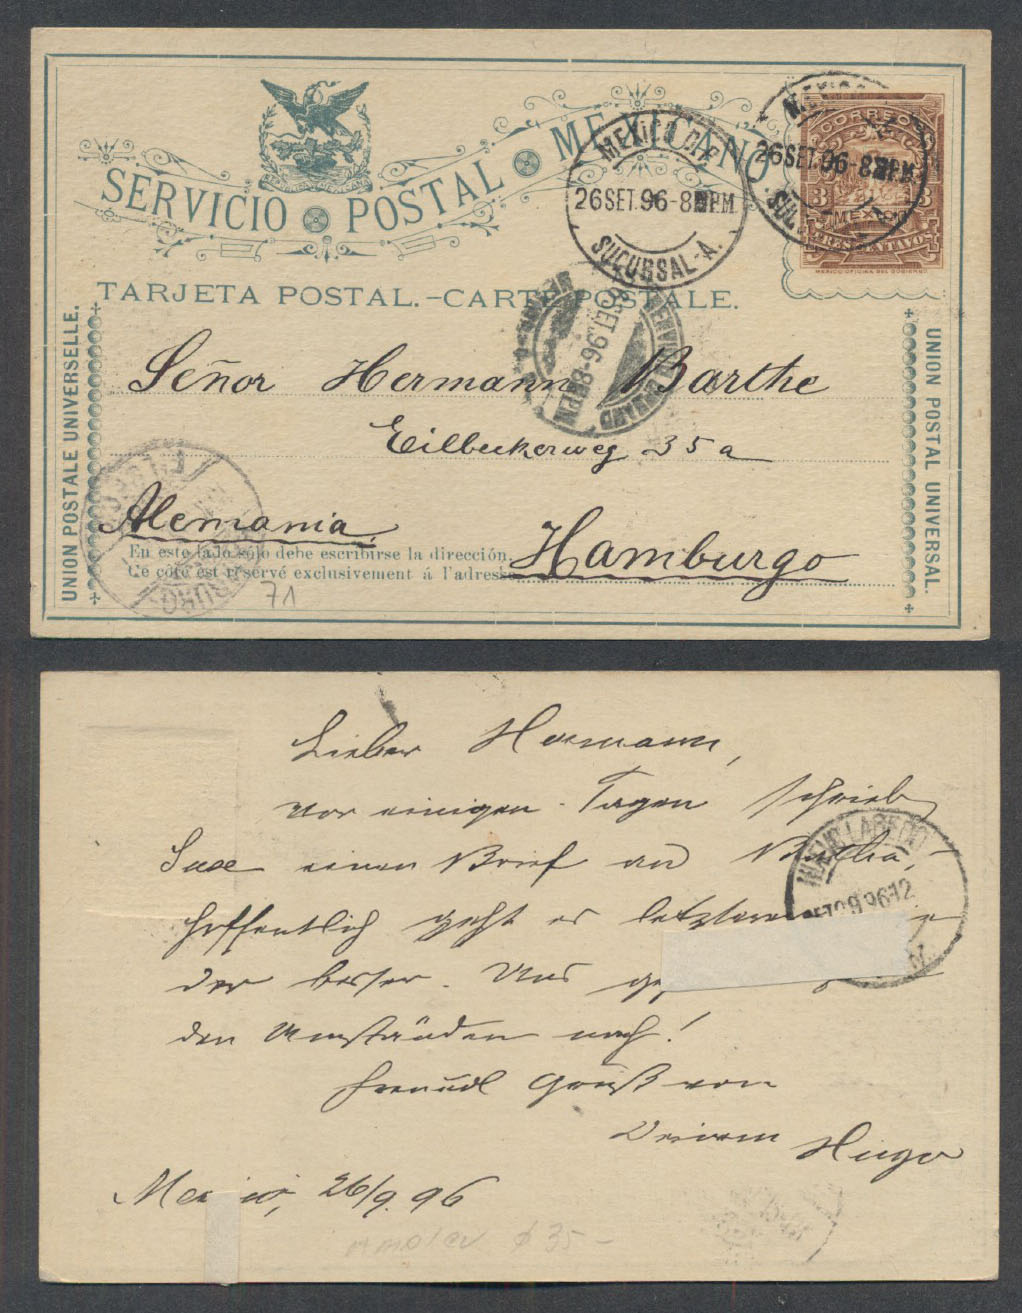 SERVICIO POSTAL MEXICANO
CORREOS
3 3
MEXICO
TRES CENTAVOS
MEXICO OFICINA DEL GOBIERNO
MEXICO D.F.
26 SET. 96-8 P.M.
SUCURSAL-A.
26 SET. 96-8 P.M.
TARJETA POSTAL.-CARTE POSTALE.
SERVICIO URBANO
SET. 96-8 P.M.
UNION POSTALE UNIVERSELLE.
UNION POSTAL UNIVERSAL.
Señor Hermann Barthe
Eilbeckerweg 35a
Alemania.
Hamburgo
En este lado sólo debe escribirse la dirección.
Ce côté est réservé exclusivement á l'adresse
71
Lieber Hermann,
vor einigen Tagen schrieb
Suse einen Brief an
hoffentlich geht es
der besser. Uns
den Umständen nach!
Freundl Gruß von
Deinem Hugo
Mexico, 26/9. 96
NUEVO LAREDO
$ 35-